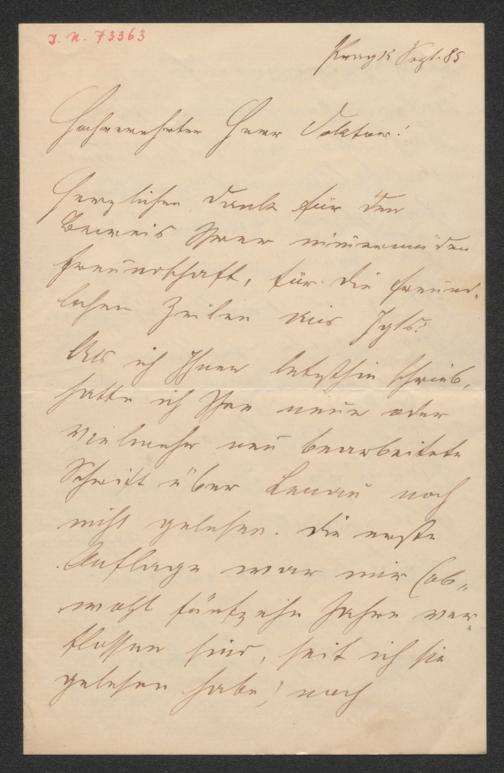 J. N. 73363
Prag 15 Sept. 85
Hochverehrter Herr Doktor!
Herzlichen Dank für den
Beweis Ihrer nimmermüden
Freundschaft, für die freund-
lichen Zeilen aus Igls.
Als ich Ihnen letzthin schrieb,
hatte ich Ihre neue oder
vielmehr neu bearbeitete
Schrift über Lenau noch
nicht gelesen. Die erste
Auflage war mir (ob-
wohl fünfzehn Jahre ver-
flossen sind, seit ich sie
gelesen habe) noch